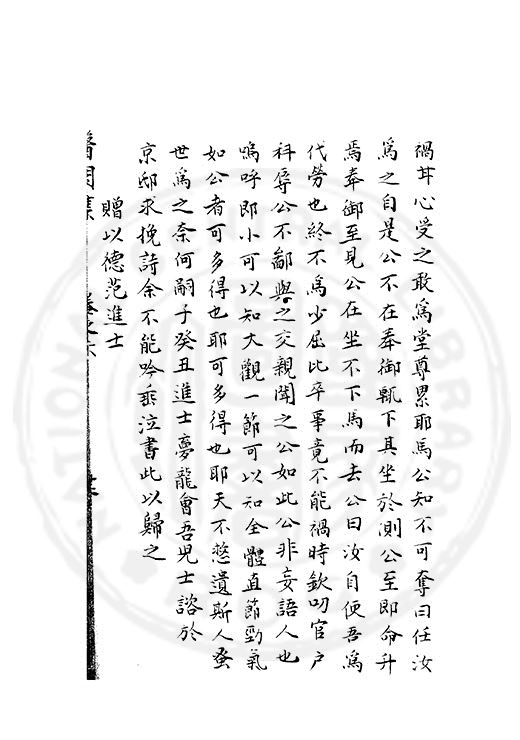 禍甘心受之敢爲堂尊累耶馬公知不可奪曰任汝
爲之自是公不在奉御輒下其坐於測公至即命升
焉奉御至見公在坐不下馬而去公曰汝自便吾爲
代勞也終不爲少屈比卒事竟不能禍時欽叨官户
科辱公不鄙與之交親聞之公如此公非妄語人也
嗚呼即小可以知大觀一節可以知全體直節勁氣
如公者可多得也耶可多得也耶天不憗遺斯人蚤
世爲之奈何嗣子癸丑進士夢龍會吾兒士諮於
京邸求挽詩余不能吟垂泣書此以歸之
贈以德范進士
卷之六